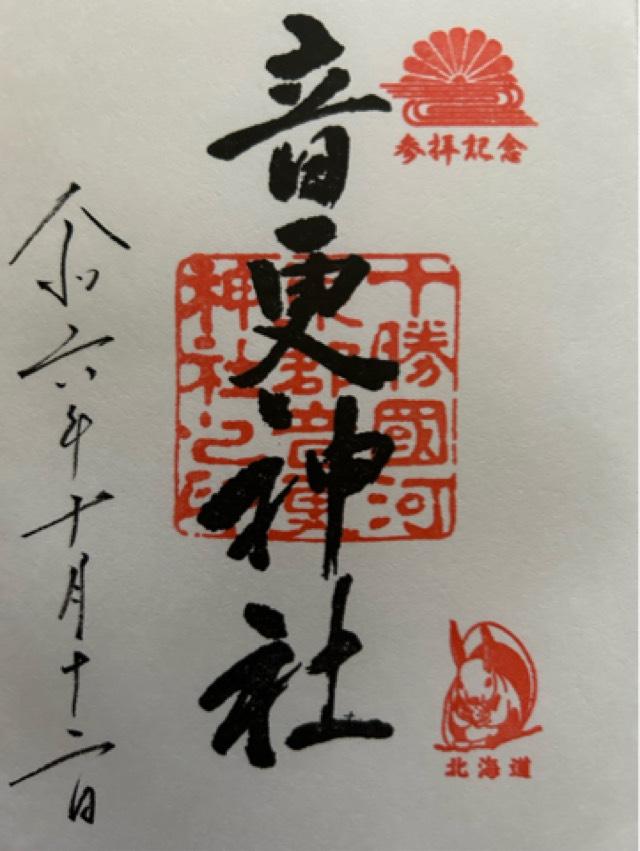 参拝記念
音更神社
十勝國河
東郡音更
神社之印
北海道
令和六年十月十二日